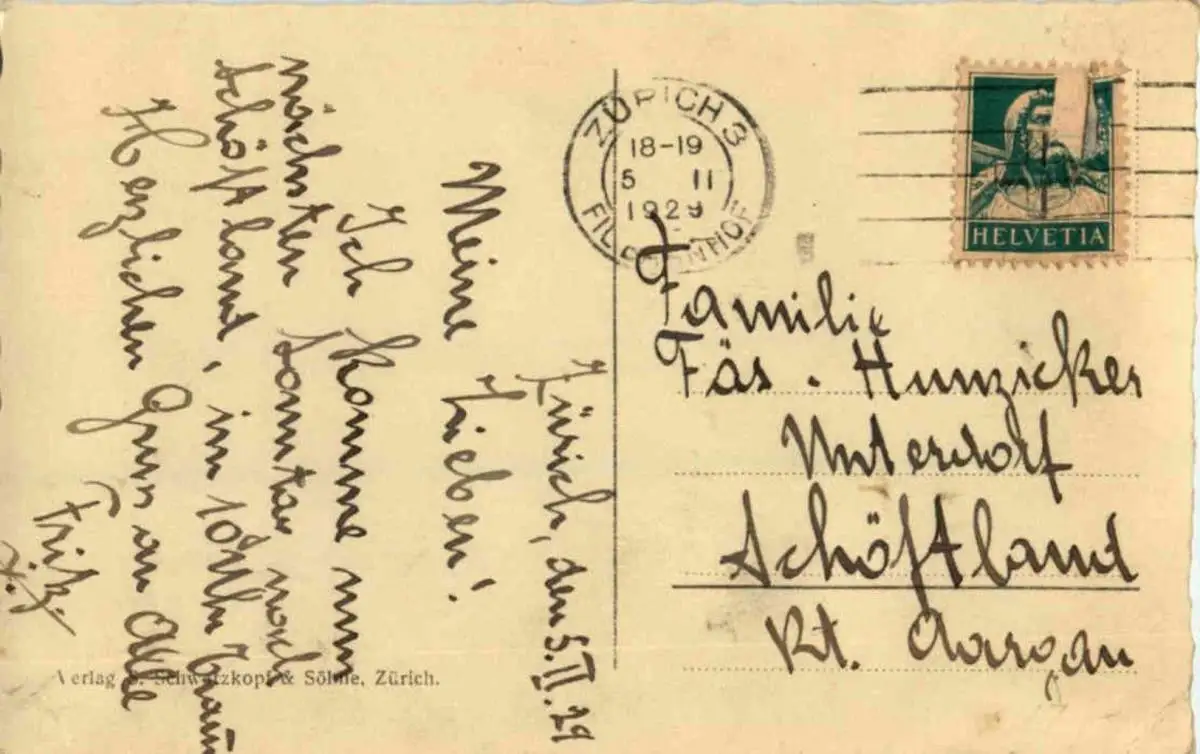 Zürich, den 5. II. 29
Meine Lieben!
Ich komme nun
nächsten Sonntag nach
Schöftland, im 10 Uhr
Herzlichen Gruss an Alle
Fritz.
Verlag S. Schwatzkopf & Söhne, Zürich.
ZÜRICH 3
18-19
5 II
1929
HELVETIA
Familie
Fäs. Hunzicker
Unterdorf
Schöftland
Kt. Aargau